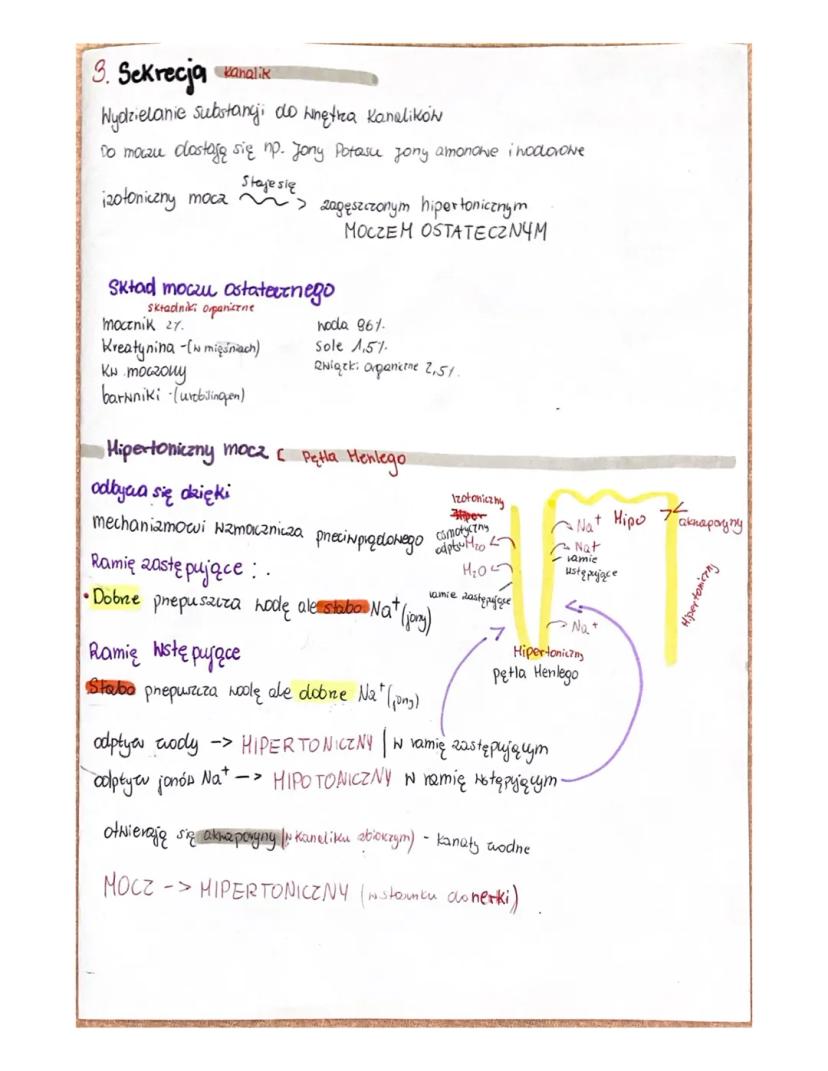 3. Sekrecja kanalik
Wydzielanie substancji do wnętrza kanalików
Do moczu dostają się np. Jony Potasu jony amonowe i wodorowe
izotoniczny mocz staje się ~~> zagęszczonym hipertonicznym
MOCZEM OSTATECZNYM
Skład moczu ostatecznego
składniki organiczne
mocznik 2%. woda 96%.
Kreatynina -(w mięśniach) Sole 1,5%.
Kw. moczowy związki organiczne 2,5%.
barwniki -(urobilinogen)
Hipertoniczny mocz [ Pętla Henlego
odbywa się dzięki
mechanizmowi wzmacniacza przeciwprądowego
Ramię zastępujące :.
•Dobrze przepuszcza wodę ale słabo Na⁺ (jony)
Ramię Wstępujące
Słabo przepuszcza wodę ale dobrze Na⁺ (jony)
Izotoniczny
osmotyczny
odpływ H₂O
H₂O
ramie zastępujące
Na⁺ Hipo
Na⁺
ramie
wstępujące
Na⁺
akwaporyny
Hipertoniczny
Hipertoniczny
pętla Henlego
odpływ wody -> HIPERTONICZNY | w ramię zastępującym
odpływ jonów Na⁺ -> HIPOTONICZNY w ramię wstępującym
otwierają się akwaporyny (w kanaliku zbiorczym) - kanały wodne
MOCZ -> HIPERTONICZNY (w stosunku do nerki)